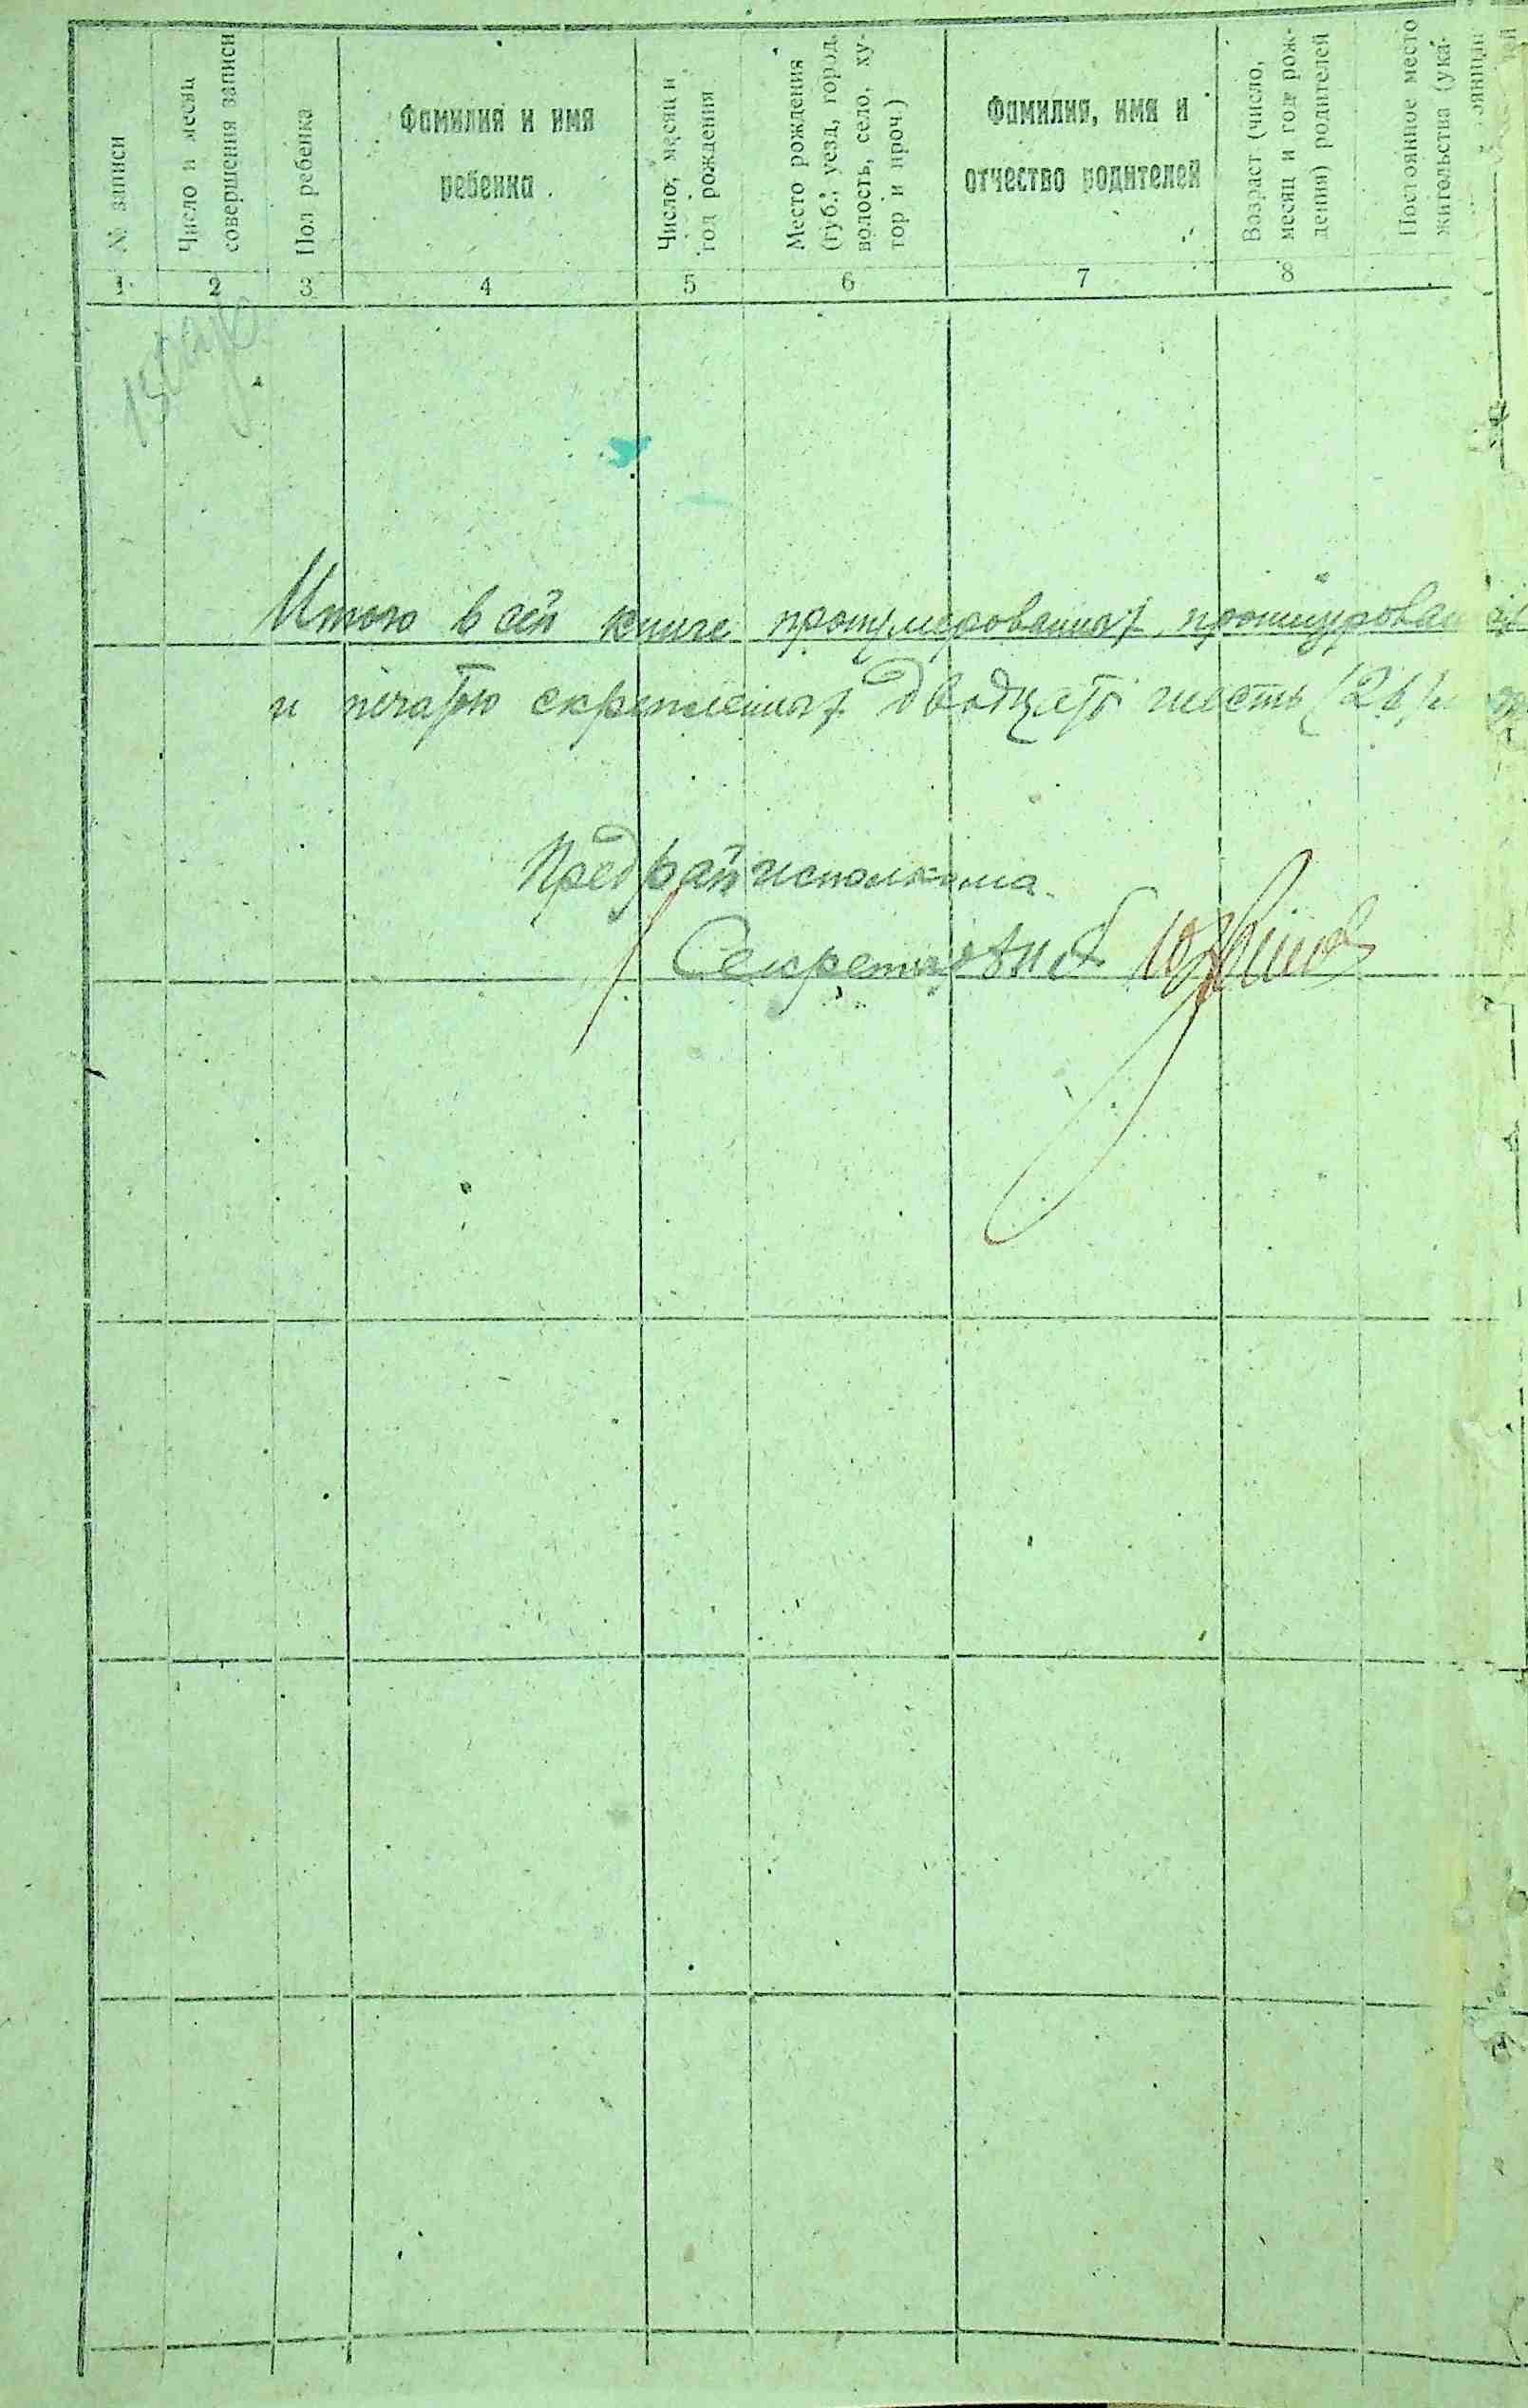 № записи
Число и месяц
совершения записи
Пол ребенка
Фамилия и имя
ребенка
Число, месяц и
год рождения
Место рождения
(губ., уезд, город,
волость, село, ху-
тор и проч.)
Фамилия, имя и
отчество родителей
Возраст (число,
месяц и год рож-
дения) родителей
Постоянное место
жительства (ука-
1 2 3 4 5 6 7 8
Итого в сей книге пронумерованных, прошнурован
и печатью скрепленных двадцать шесть (26)
Предрайисполкома
Секретарь